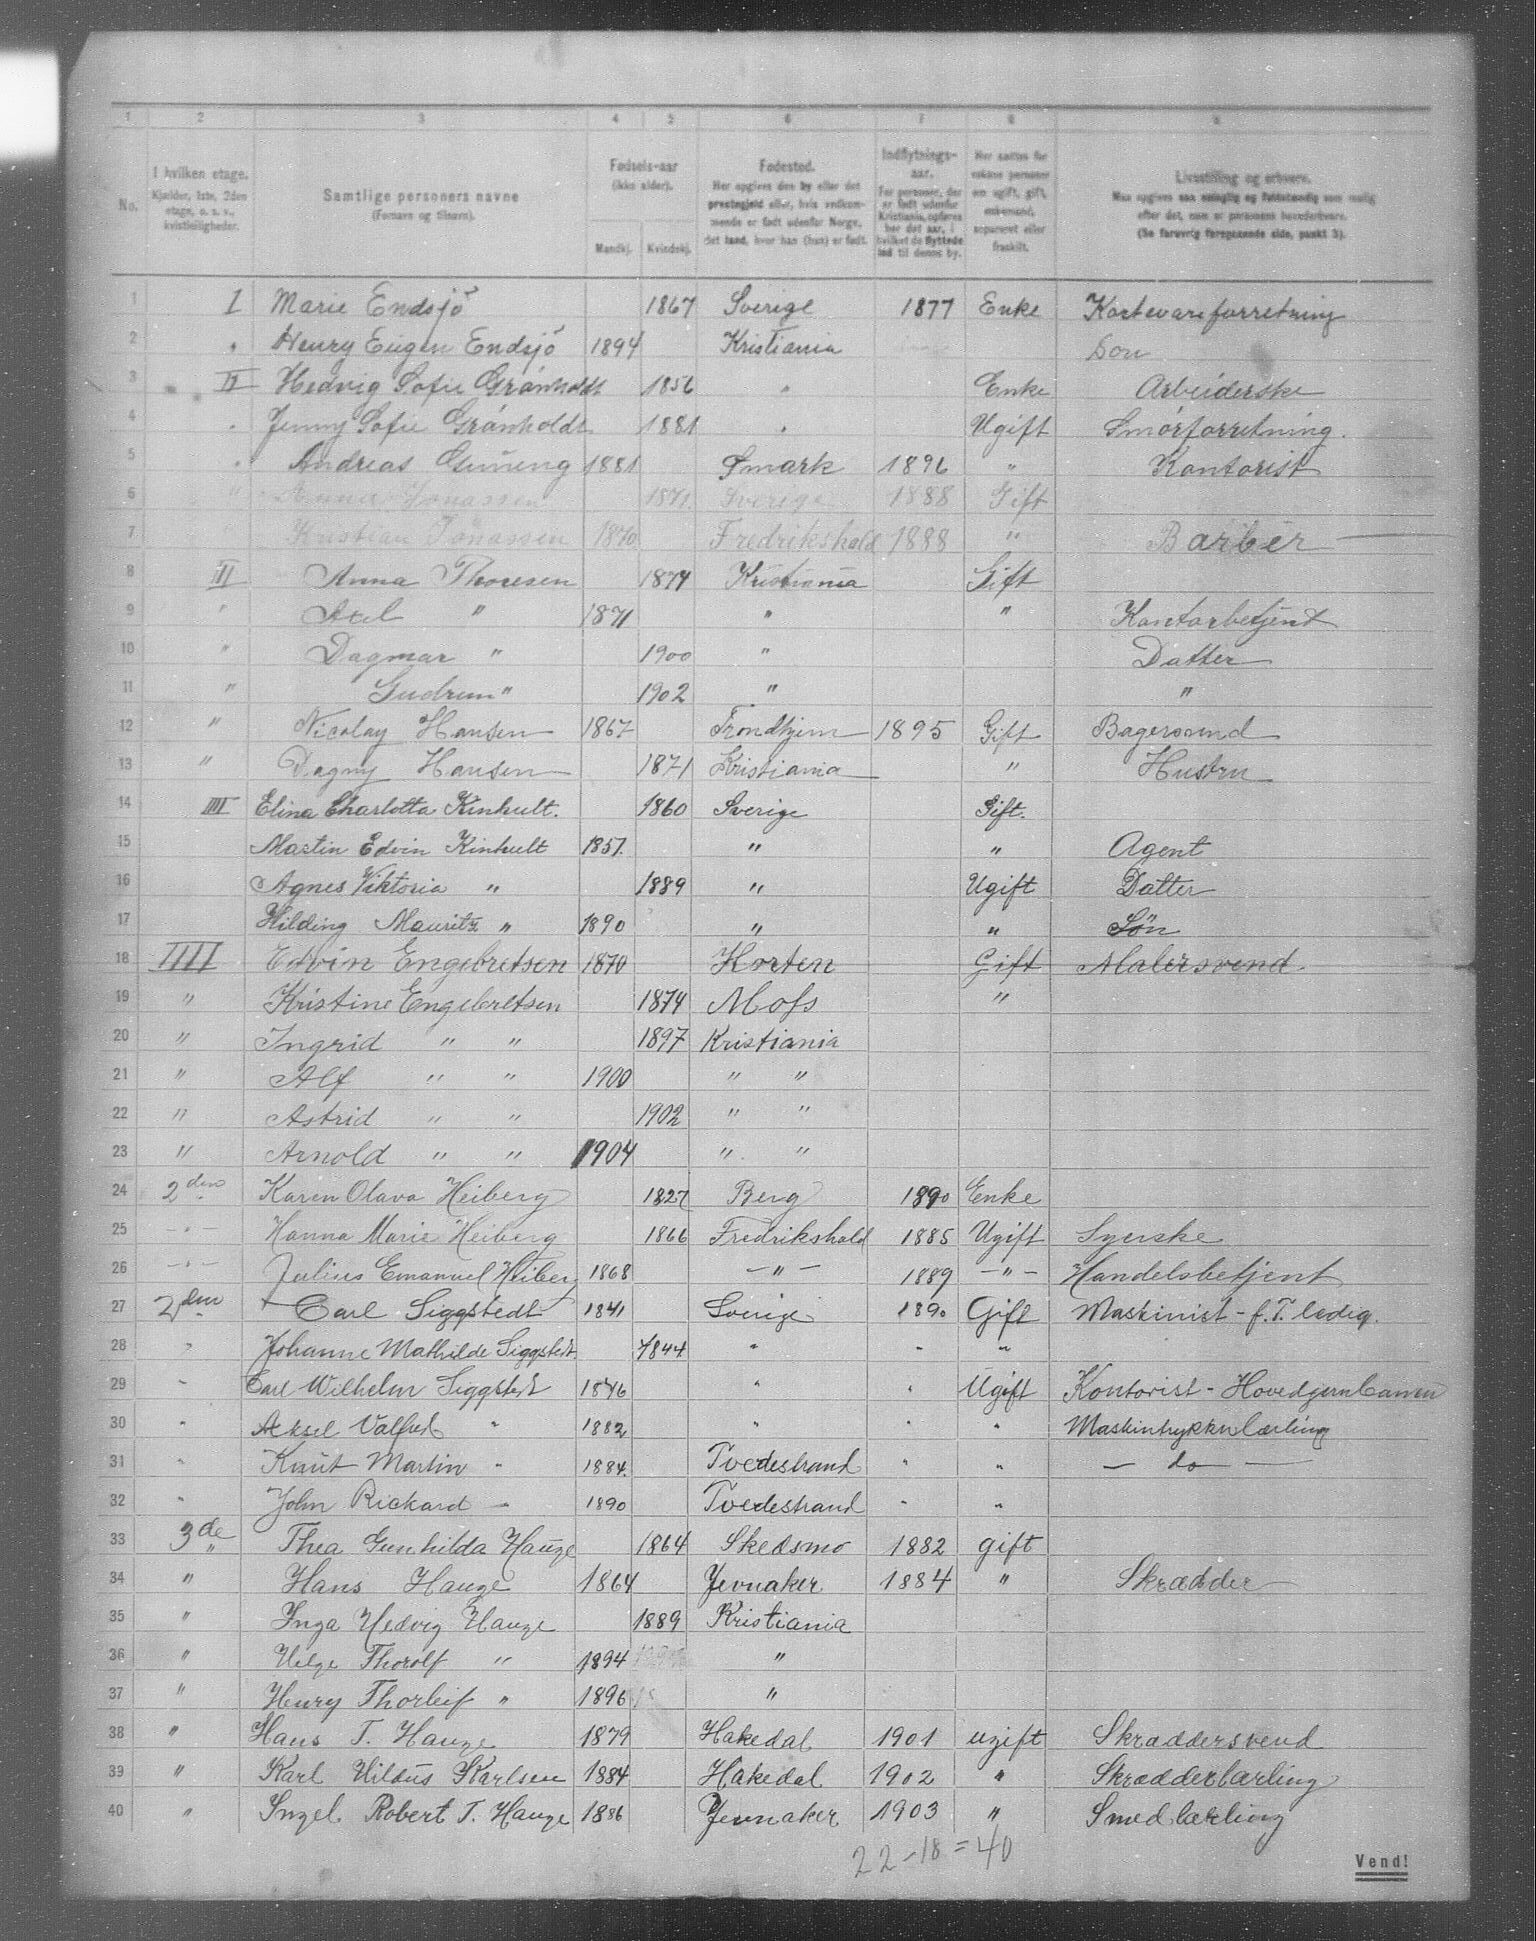 1 2 3 4 5 6 7 8 9
No. I hvilken etage. Kjælder, 1ste, 2den etage, o. s. v., kvistleiligheder. Samtlige personers navne (Fornavn og tilnavn). Fødsels-aar (ikke alder). Mandkj. Kvindekj. Fødested. Her opgives den by eller det prestegjeld eller, hvis vedkommende er født udenfor Norge, det land, hvor han (hun) er født. Indflytnings-aar. For personer, der er født udenfor Kristiania, opføres her det aar, i hvilket de flyttede ind til denne by. Her sættes for voksne personer om ugift, gift, enkemand, separeret eller fraskilt. Livsstilling og erhverv. Maa opgives saa nøiagtig og fuldstændig som mulig efter det, som er personens hovederhverv. (Se forøvrig foregaaende side, punkt 3).
1 I Marie Endsjö 1867 Sverige 1877 Enke Kortevareforretning
2 " Henry Eugen Endsjö 1894 Kristiania Son
3 II Hedvig Sofie Grönholdt 1856 " Enke Arbeiderske
4 " Jenny Sofie Grönholdt 1881 " Ugift Smörforretning.
5 " Andreas 1881 Smark 1896 " Kontorist
6 " Anna Jonassen 1871. Sverige 1888 Gift
7 " Kristian Jonassen 1870 Fredrikshald 1888 " Barber
8 III Anna Thoresen 1874 Kristiania Gift
9 " Axel " 1871 " " Kontorbetjent
10 " Dagmar " 1900 " Datter
11 " Gudrun " 1902 " "
12 " Nicolay Hansen 1867 Trondhjem 1895 Gift Bagersvend
13 " Dagny Hansen 1871 Kristiania " Hustru
14 IIII Elina Charlotta Kinhult. 1860 Sverige Gift.
15 Martin Edvin Kinhult 1857. " " Agent
16 Agnes Viktoria " 1889 " Ugift Datter
17 Hilding Mauritz " 1890 " " Sön
18 IIII Edvin Engebretsen 1870 Horten Gift Malersvend.
19 " Kristine Engebretsen 1874 Moss "
20 " Ingrid " " 1897 Kristiania
21 " Alf " " 1900 " "
22 " Astrid " " 1902 " "
23 " Arnold " " 1904 " "
24 2den Karen Olava Heiberg 1827 Berg 1890 Enke
25 - " - Hanna Marie Heiberg 1866 Fredrikshald 1885 Ugift Syerske
26 - " - Julius Emanuel Heiberg 1868 - " - 1889 - " - Handelsbetjent
27 2den Carl Siggstedt 1841 Sverige 1890 Gift Maskinist - f. T. ledig.
28 " Johanne Mathilde Siggstedt. 1844 " " "
29 " Carl Wilhelm Siggstedt 1876 " " Ugift Kontorist - Hovedjernbanen
30 " Aksel Valfred " 1882 " " " Maskintrykkerlærling
31 " Knut Martin " 1884. Tvedestrand " " - do -
32 " John Rickard - 1890 Tvedestrand " "
33 3de " Thea Gunhilda Hauge 1864 Skedsmo 1882 gift
34 " Hans Hauge 1864 Jevnaker 1884 " Skrædder
35 " Inga Hedvig Hauge 1889 Kristiania
36 " Helge Thorolf " 1894 "
37 " Henry Thorleif " 1896 "
38 " Hans T. Hauge 1879 Hakedal 1901 ugift Skræddersvend
39 " Karl Hildus Karlsen 1884 Hakedal 1902 " Skrædderlærling
40 " Ingel Robert T. Hauge 1886 Jevnaker 1903 " Smedlærling
22-18=40
Vend!